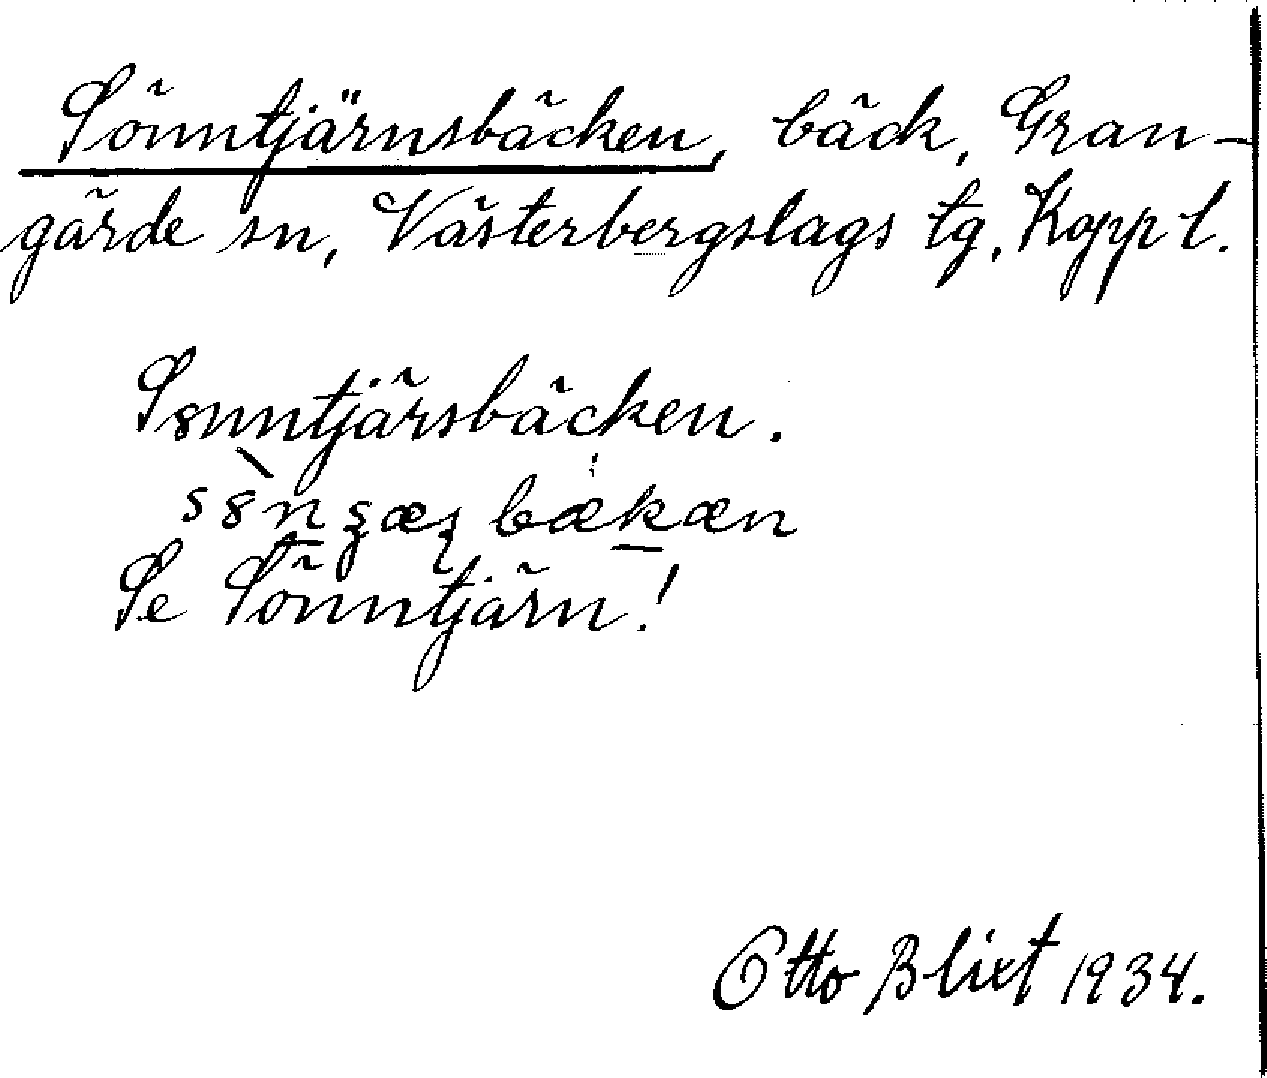 Sönntjärnsbäcken, bäck, Gran-
gärde sn, Västerbergslags tg, Kopp l.
S8nntjärsbäcken.
Se Sönntjärn!
Otto Blixt 1934.